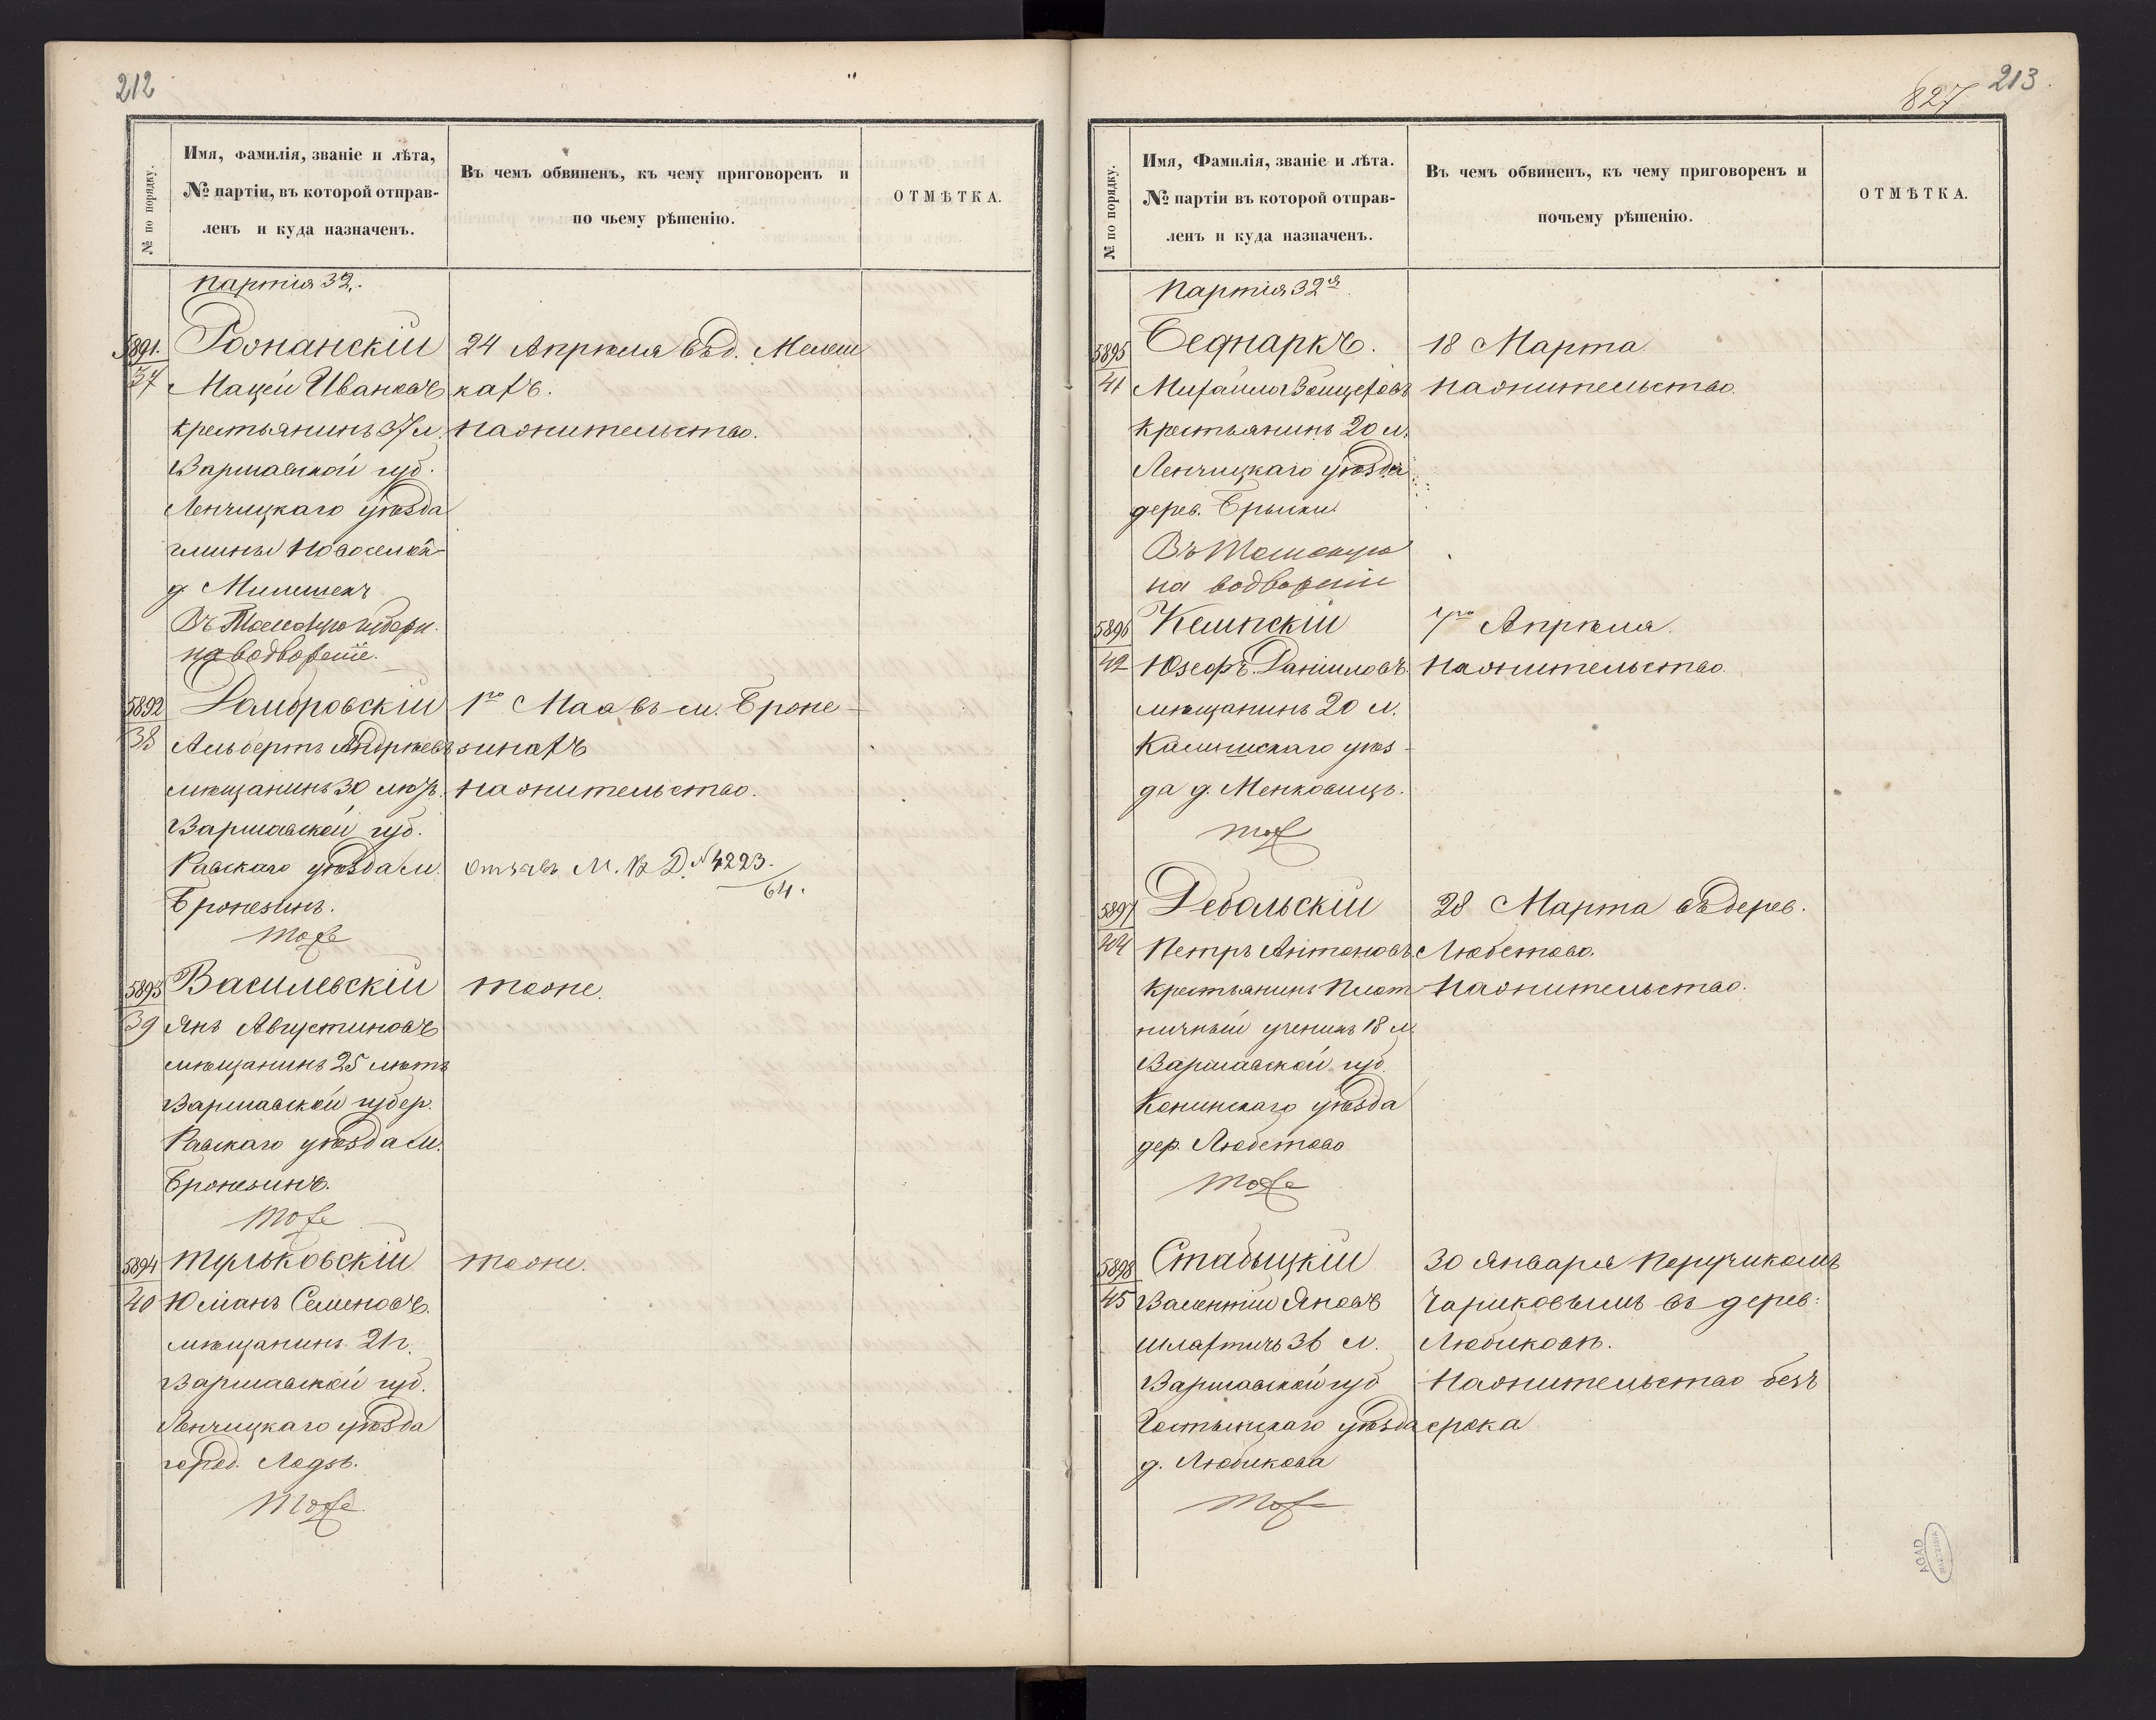 212
№ по порядку.
Имя, фамилія, званіе и лѣта,
№ партіи, въ которой отправ-
ленъ и куда назначенъ.
Въ чемъ обвиненъ, къ чему приговоренъ и
по чьему рѣшенію.
ОТМѢТКА.
партія 32.
5891.
37
Рожнанскій
Мацей Ивановъ
крестьянинъ 37 л.
Варшавской губ.
Ленчицкаго уѣзда
гмины
д.
Въ Томскую губерн.
на водвореніе.
24 Апрѣля въ д.
кахъ.
на жительство.
5892
38
Домбровскій
Альбертъ Андреевъ
мѣщанинъ 30 лѣтъ.
Варшавской губ.
Равскаго уѣзда м.
Бронезинъ.
тоже
1го Мая въ м. Броне-
зинахъ
на жительство.
М. В. Д. № 4223.
64.
5893
39
Василевскій
Янъ Августиновъ
мѣщанинъ 25 лѣтъ
Варшавской губер.
Равскаго уѣзда м.
Бронезинъ.
тоже
тоже.
5894
40
Тульковскій
Юліанъ Семеновъ.
мѣщанинъ 21 г.
Варшавской губ.
Ленчицкаго уѣзда
город. Лодзь.
тоже.
тоже.
827
213.
№ по порядку.
Имя, Фамилія, званіе и лѣта.
№ партіи въ которой отправ-
ленъ и куда назначенъ.
Въ чемъ обвиненъ, къ чему приговоренъ и
почьему рѣшенію.
ОТМѢТКА.
Партія 32я
5895
41
Беднаркъ.
Михайло Войцеховъ
крестьянинъ 20 л.
Ленчицкаго уѣзда
дерев. Брыски
Въ Томскую
на водвореніе
18 Марта.
на жительство.
5896
42
Кемпскій
Юзефъ Даниловъ.
мѣщанинъ 20 л.
Калишскаго уѣз-
да д. Менковицъ.
тоже
7го Апрѣля.
на жительство.
5897
44
Дебальскій
Петръ Антоновъ.
крестьянинъ плот
ничный ученикъ 18 л.
Варшавской губ.
Конинскаго уѣзда
дер. Любстово
тоже
28 Марта въ дерев.
Любстово.
на жительство.
5898
45
Стабыцкій
Валентій Яновъ
шляхтичъ 36 л.
Варшавской губ
Гостынскаго уѣзда
д. Любикова
тоже
30 Января поручикомъ
Чариковымъ въ дерев:
Любиковѣ.
на жительство безъ
срока
AGAD
WARSZAWA